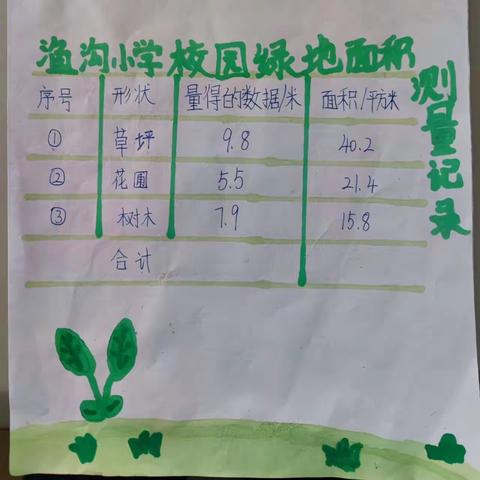 渔沟小学校园绿地面积
测量记录
序号 形状 量得的数据/米 面积/平方米
① 草坪 9.8 40.2
② 花圃 5.5 21.4
③ 树木 7.9 15.8
合计